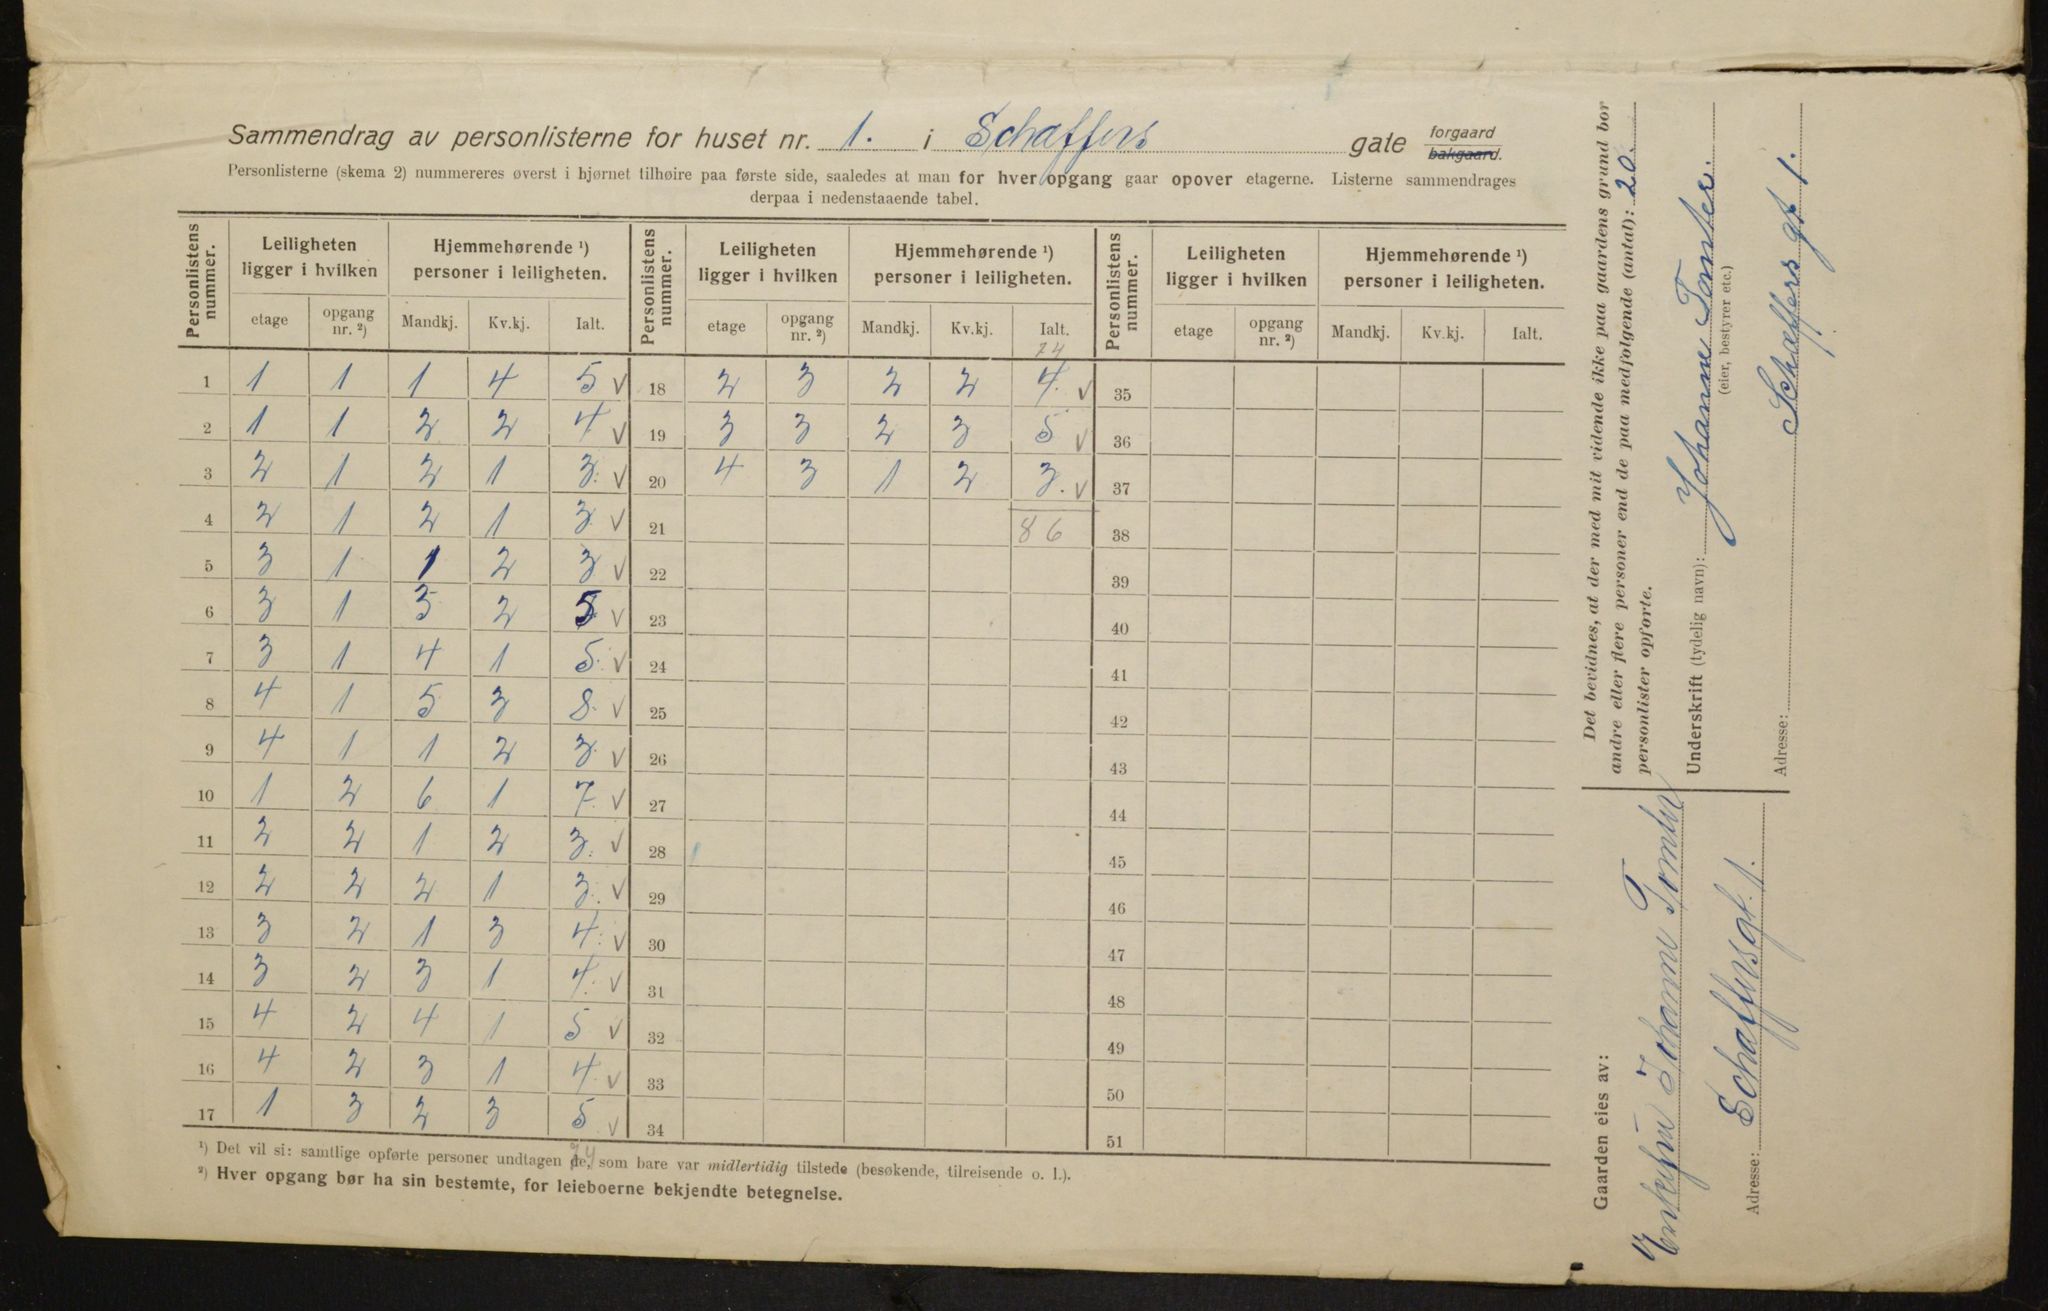 Sammendrag av personlisterne for huset nr. 1. i Schaffers gate forgaard bakgaard.
Personlisterne (skema 2) nummereres øverst i hjørnet tilhøire paa første side, saaledes at man for hver opgang gaar opover etagerne. Listerne sammendrages
derpaa i nedenstaaende tabel.
Personlistens nummer. Leiligheten ligger i hvilken Hjemmehørende ¹) personer i leiligheten. Personlistens nummer. Leiligheten ligger i hvilken Hjemmehørende ¹) personer i leiligheten. Personlistens nummer. Leiligheten ligger i hvilken Hjemmehørende ¹) personer i leiligheten.
etage opgang nr. ²) Mandkj. Kv.kj. Ialt. etage opgang nr. ²) Mandkj. Kv.kj. Ialt. etage opgang nr. ²) Mandkj. Kv.kj. Ialt.
74
1 1 1 1 4 5 V 18 2 3 2 2 4. V 35
2 1 1 2 2 4 V 19 3 3 2 3 5 V 36
3 2 1 2 1 3. V 20 4 3 1 2 3. V 37
4 2 1 2 1 3. V 21 86 38
5 3 1 1 2 3 V 22 39
6 3 1 3 2 5 V 23 40
7 3 1 4 1 5. V 24 41
8 4 1 5 3 8. V 25 42
9 4 1 1 2 3. V 26 43
10 1 2 6 1 7. V 27 44
11 2 2 1 2 3. V 28 45
12 2 2 2 1 3. V 29 46
13 3 2 1 3 4. V 30 47
14 3 2 3 1 4. V 31 48
15 4 2 4 1 5 V 32 49
16 4 2 3 1 4. V 33 50
17 1 3 2 3 5. V 34 51
74
¹) Det vil si: samtlige opførte personer undtagen de, som bare var midlertidig tilstede (besøkende, tilreisende o. l.).
²) Hver opgang bør ha sin bestemte, for leieboerne bekjendte betegnelse.
Det bevidnes, at der med mit vidende ikke paa gaardens grund bor
andre eller flere personer end de paa medfølgende (antal): 20.
personlister opførte.
Underskrift (tydelig navn): Johanne Tomter.
(eier, bestyrer etc.)
Adresse: Schæffers gt 1.
Gaarden eies av:
Enkefru Johanne Tomter
Adresse: Schaffersgt. 1.